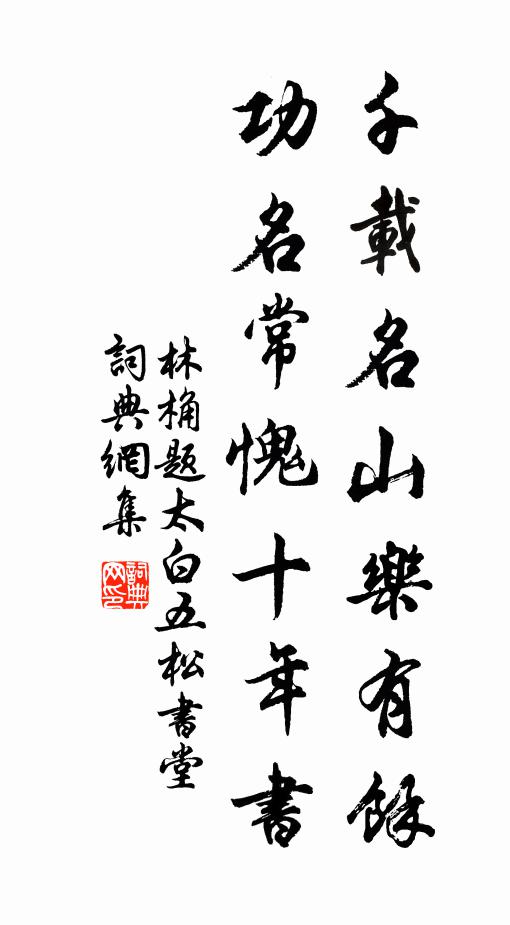 千載名山樂有餘
功名常愧十年書
林桷题太白五松書堂
詞典網集
詞典网印